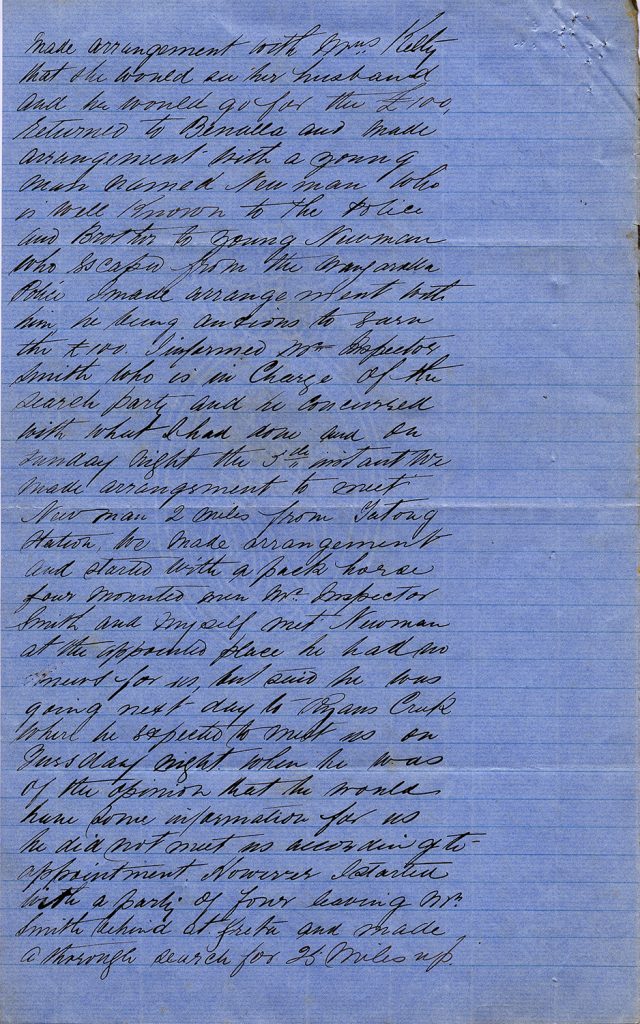 made arrangement with Mrs Kelly
that she would see her husband
and he would go for the £100,
returned to Benalla and made
arrangement with a young
man named Newman who
is well known to the Police
and Brother to young Newman
who escaped from the Wangaratta
Police I made arrangement with
him, he being anxious to earn
the £100. I informed Mr Inspector
Smith who is in Charge of the
search party and he concurred
with what I had done and on
Sunday night the instant we
made arrangement to meet
Newman 2 miles from Tatong
Station, We made arrangement
and started with a pack horse
four mounted men Mr Inspector
Smith and myself met Newman
at the appointed place he had no
news for us, but said he was
going next day to Ryans Creek
where he expected to meet us on
Tuesday night when he was
of the opinion that he would
have some information for us
he did not meet us according to
appointment. However I started
with a party of four leaving Mr
Smith behind at Greta and made
a thorough search for 25 miles up.